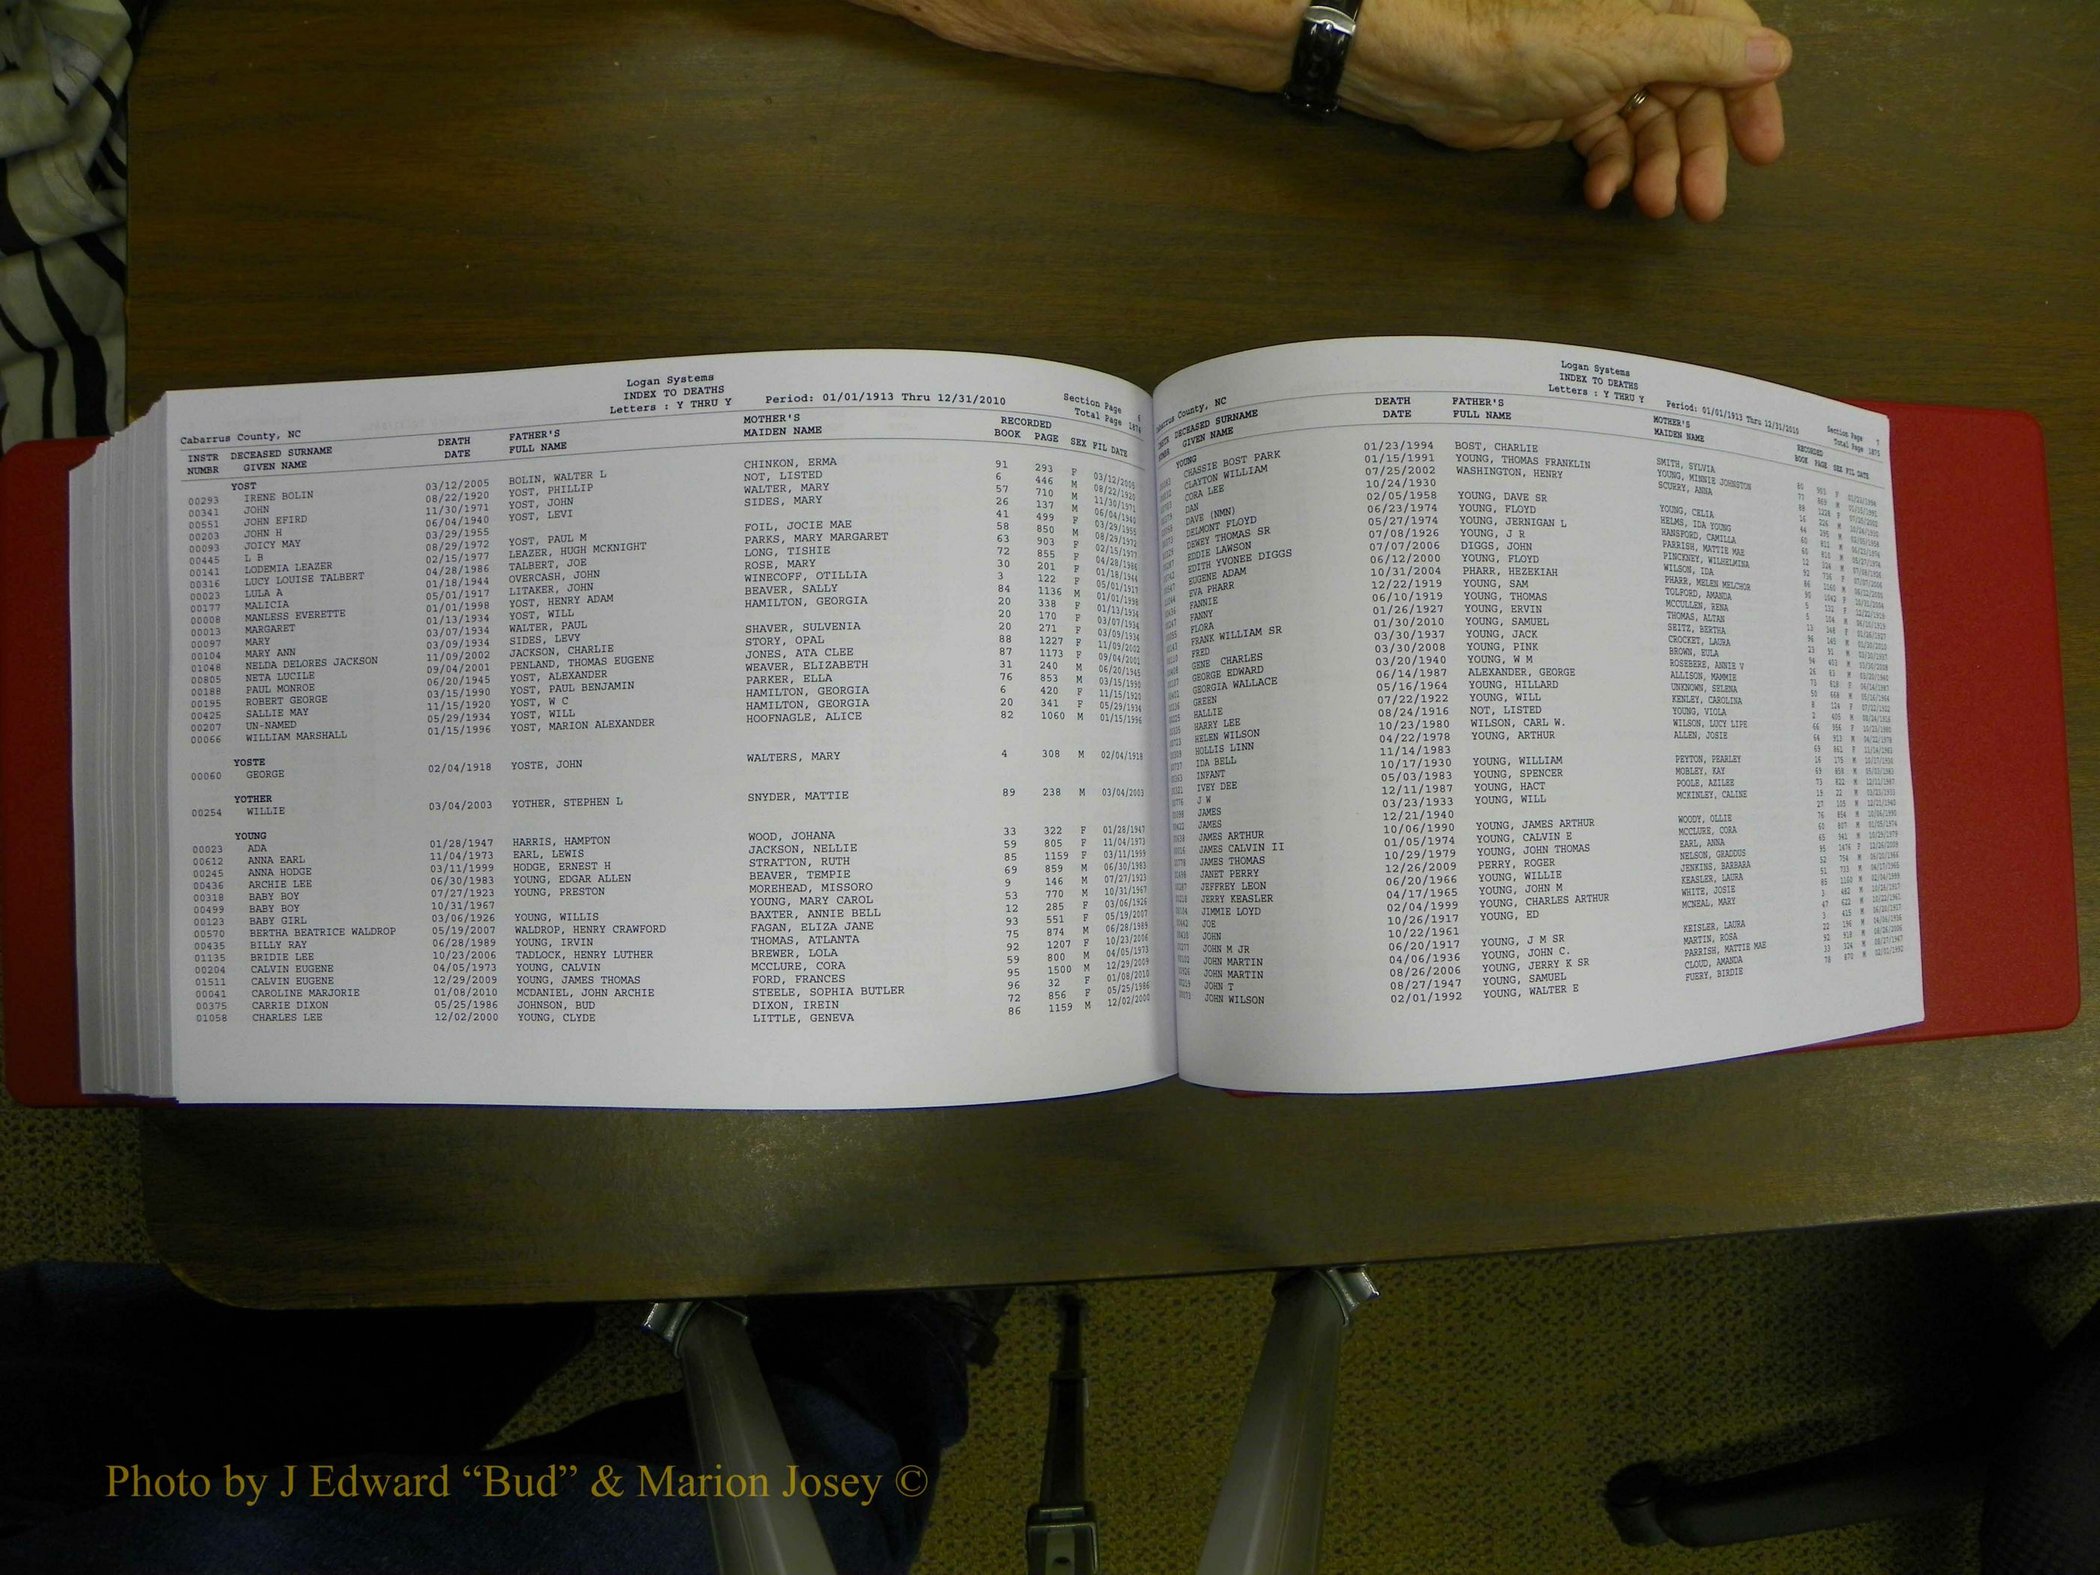 Logan Systems
INDEX TO DEATHS
Letters : Y THRU Y Period: 01/01/1913 Thru 12/31/2010
Section Page 6
Total Page 1874
Cabarrus County, NC
INSTR DECEASED SURNAME DEATH FATHER'S MOTHER'S RECORDED
NUMBR GIVEN NAME DATE FULL NAME MAIDEN NAME BOOK PAGE SEX FIL DATE
YOST
00293 IRENE BOLIN 03/12/2005 BOLIN, WALTER L CHINKON, ERMA 91 293 F 03/12/2005
00341 JOHN 08/22/1920 YOST, PHILLIP NOT, LISTED 6 446 M 08/22/1920
00551 JOHN EFIRD 11/30/1971 YOST, JOHN WALTER, MARY 57 710 M 11/30/1971
00203 JOHN H 06/04/1940 YOST, LEVI SIDES, MARY 26 137 M 06/04/1940
00093 JOICY MAY 03/29/1955 41 499 F 03/29/1955
00445 L B 08/29/1972 YOST, PAUL M FOIL, JOCIE MAE 58 850 M 08/29/1972
00141 LODEMIA LEAZER 02/15/1977 LEAZER, HUGH MCKNIGHT PARKS, MARY MARGARET 63 903 F 02/15/1977
00316 LUCY LOUISE TALBERT 04/28/1986 TALBERT, JOE LONG, TISHIE 72 855 F 04/28/1986
00023 LULA A 01/18/1944 OVERCASH, JOHN ROSE, MARY 30 201 F 01/18/1944
00177 MALICIA 05/01/1917 LITAKER, JOHN WINECOFF, OTILLIA 3 122 F 05/01/1917
00008 MANLESS EVERETTE 01/01/1998 YOST, HENRY ADAM BEAVER, SALLY 84 1136 M 01/01/1998
00013 MARGARET 01/13/1934 YOST, WILL HAMILTON, GEORGIA 20 338 F 01/13/1934
00097 MARY 03/07/1934 WALTER, PAUL 20 170 F 03/07/1934
00104 MARY ANN 03/09/1934 SIDES, LEVY SHAVER, SULVENIA 20 271 F 03/09/1934
01048 NELDA DELORES JACKSON 11/09/2002 JACKSON, CHARLIE STORY, OPAL 88 1227 F 11/09/2002
00805 NETA LUCILE 09/04/2001 PENLAND, THOMAS EUGENE JONES, ATA CLEE 87 1173 F 09/04/2001
00188 PAUL MONROE 06/20/1945 YOST, ALEXANDER WEAVER, ELIZABETH 31 240 M 06/20/1945
00195 ROBERT GEORGE 03/15/1990 YOST, PAUL BENJAMIN PARKER, ELLA 76 853 M 03/15/1990
00425 SALLIE MAY 11/15/1920 YOST, W C HAMILTON, GEORGIA 6 420 F 11/15/1920
00207 UN-NAMED 05/29/1934 YOST, WILL HAMILTON, GEORGIA 20 341 F 05/29/1934
00066 WILLIAM MARSHALL 01/15/1996 YOST, MARION ALEXANDER HOOFNAGLE, ALICE 82 1060 M 01/15/1996
YOSTE
00060 GEORGE 02/04/1918 YOSTE, JOHN WALTERS, MARY 4 308 M 02/04/1918
YOTHER
00254 WILLIE 03/04/2003 YOTHER, STEPHEN L SNYDER, MATTIE 89 238 M 03/04/2003
YOUNG
00023 ADA 01/28/1947 HARRIS, HAMPTON WOOD, JOHANA 33 322 F 01/28/1947
00612 ANNA EARL 11/04/1973 EARL, LEWIS JACKSON, NELLIE 59 805 F 11/04/1973
00245 ANNA HODGE 03/11/1999 HODGE, ERNEST H STRATTON, RUTH 85 1159 F 03/11/1999
00436 ARCHIE LEE 06/30/1983 YOUNG, EDGAR ALLEN BEAVER, TEMPIE 69 859 M 06/30/1983
00318 BABY BOY 07/27/1923 YOUNG, PRESTON MOREHEAD, MISSORO 9 146 M 07/27/1923
00499 BABY BOY 10/31/1967 YOUNG, MARY CAROL 53 770 M 10/31/1967
00123 BABY GIRL 03/06/1926 YOUNG, WILLIS BAXTER, ANNIE BELL 12 285 F 03/06/1926
00570 BERTHA BEATRICE WALDROP 05/19/2007 WALDROP, HENRY CRAWFORD FAGAN, ELIZA JANE 93 551 F 05/19/2007
00435 BILLY RAY 06/28/1989 YOUNG, IRVIN THOMAS, ATLANTA 75 874 M 06/28/1989
01135 BRIDIE LEE 10/23/2006 TADLOCK, HENRY LUTHER BREWER, LOLA 92 1207 F 10/23/2006
00204 CALVIN EUGENE 04/05/1973 YOUNG, CALVIN MCCLURE, CORA 59 800 M 04/05/1973
01511 CALVIN EUGENE 12/29/2009 YOUNG, JAMES THOMAS FORD, FRANCES 95 1500 M 12/29/2009
00041 CAROLINE MARJORIE 01/08/2010 MCDANIEL, JOHN ARCHIE STEELE, SOPHIA BUTLER 96 32 F 01/08/2010
00375 CARRIE DIXON 05/25/1986 JOHNSON, BUD DIXON, IREIN 72 856 F 05/25/1986
01058 CHARLES LEE 12/02/2000 YOUNG, CLYDE LITTLE, GENEVA 86 1159 M 12/02/2000
Logan Systems
INDEX TO DEATHS
Letters : Y THRU Y Period: 01/01/1913 Thru 12/31/2010
Section Page 7
Total Page 1875
County, NC
DECEASED SURNAME DEATH FATHER'S MOTHER'S RECORDED
GIVEN NAME DATE FULL NAME MAIDEN NAME BOOK PAGE SEX FIL DATE
YOUNG
CHASSIE BOST PARK 01/23/1994 BOST, CHARLIE SMITH, SYLVIA
CLAYTON WILLIAM 01/15/1991 YOUNG, THOMAS FRANKLIN YOUNG, MINNIE JOHNSTON
CORA LEE 07/25/2002 WASHINGTON, HENRY SCURRY, ANNA
DAN 10/24/1930
DAVE (NMN) 02/05/1958 YOUNG, DAVE SR YOUNG, CELIA
DELMONT FLOYD 06/23/1974 YOUNG, FLOYD HELMS, IDA YOUNG
DEWEY THOMAS SR 05/27/1974 YOUNG, JERNIGAN L HANSFORD, CAMILLA
EDDIE LAWSON 07/08/1926 YOUNG, J R PARRISH, MATTIE MAE
EDITH YVONEE DIGGS 07/07/2006 DIGGS, JOHN PINCKNEY, WILHELMINA
EUGENE ADAM 06/12/2000 YOUNG, FLOYD WILSON, IDA
EVA PHARR 10/31/2004 PHARR, HEZEKIAH PHARR, MELEN MELCHOR
FANNIE 12/22/1919 YOUNG, SAM TOLFORD, AMANDA
FANNY 06/10/1919 YOUNG, THOMAS MCCULLEN, RENA
FLORA 01/26/1927 YOUNG, ERVIN THOMAS, ALTAN
FRANK WILLIAM SR 01/30/2010 YOUNG, SAMUEL SEITZ, BERTHA
FRED 03/30/1937 YOUNG, JACK CROCKET, LAURA
GENE CHARLES 03/30/2008 YOUNG, PINK BROWN, EULA
GEORGE EDWARD 03/20/1940 YOUNG, W M ROSEBERE, ANNIE V
GEORGIA WALLACE 06/14/1987 ALEXANDER, GEORGE ALLISON, MAMMIE
GREEN 05/16/1964 YOUNG, HILLARD UNKNOWN, SELENA
HALLIE 07/22/1922 YOUNG, WILL KENLEY, CAROLINA
HARRY LEE 08/24/1916 NOT, LISTED YOUNG, VIOLA
HELEN WILSON 10/23/1980 WILSON, CARL W. WILSON, LUCY LIPE
HOLLIS LINN 04/22/1978 YOUNG, ARTHUR ALLEN, JOSIE
IDA BELL 11/14/1983
INFANT 10/17/1930 YOUNG, WILLIAM PEYTON, PEARLEY
IVEY DEE 05/03/1983 YOUNG, SPENCER MOBLEY, KAY
J W 12/11/1987 YOUNG, HACT POOLE, AZILEE
JAMES 03/23/1933 YOUNG, WILL MCKINLEY, CALINE
JAMES 12/21/1940
JAMES ARTHUR 10/06/1990 YOUNG, JAMES ARTHUR WOODY, OLLIE
JAMES CALVIN II 01/05/1974 YOUNG, CALVIN E MCCLURE, CORA
JAMES THOMAS 10/29/1979 YOUNG, JOHN THOMAS EARL, ANNA
JANET PERRY 12/26/2009 PERRY, ROGER NELSON, GRADDUS
JEFFREY LEON 06/20/1966 YOUNG, WILLIE JENKINS, BARBARA
JERRY KEASLER 04/17/1965 YOUNG, JOHN M KEASLER, LAURA
JIMMIE LOYD 02/04/1999 YOUNG, CHARLES ARTHUR WHITE, JOSIE
JOE 10/26/1917 YOUNG, ED MCNEAL, MARY
JOHN 10/22/1961
JOHN M JR 06/20/1917 YOUNG, J M SR KEISLER, LAURA
JOHN MARTIN 04/06/1936 YOUNG, JOHN C. MARTIN, ROSA
JOHN MARTIN 08/26/2006 YOUNG, JERRY K SR PARRISH, MATTIE MAE
JOHN T 08/27/1947 YOUNG, SAMUEL CLOUD, AMANDA
JOHN WILSON 02/01/1992 YOUNG, WALTER E FUERY, BIRDIE
Photo by J Edward “Bud” & Marion Josey ©